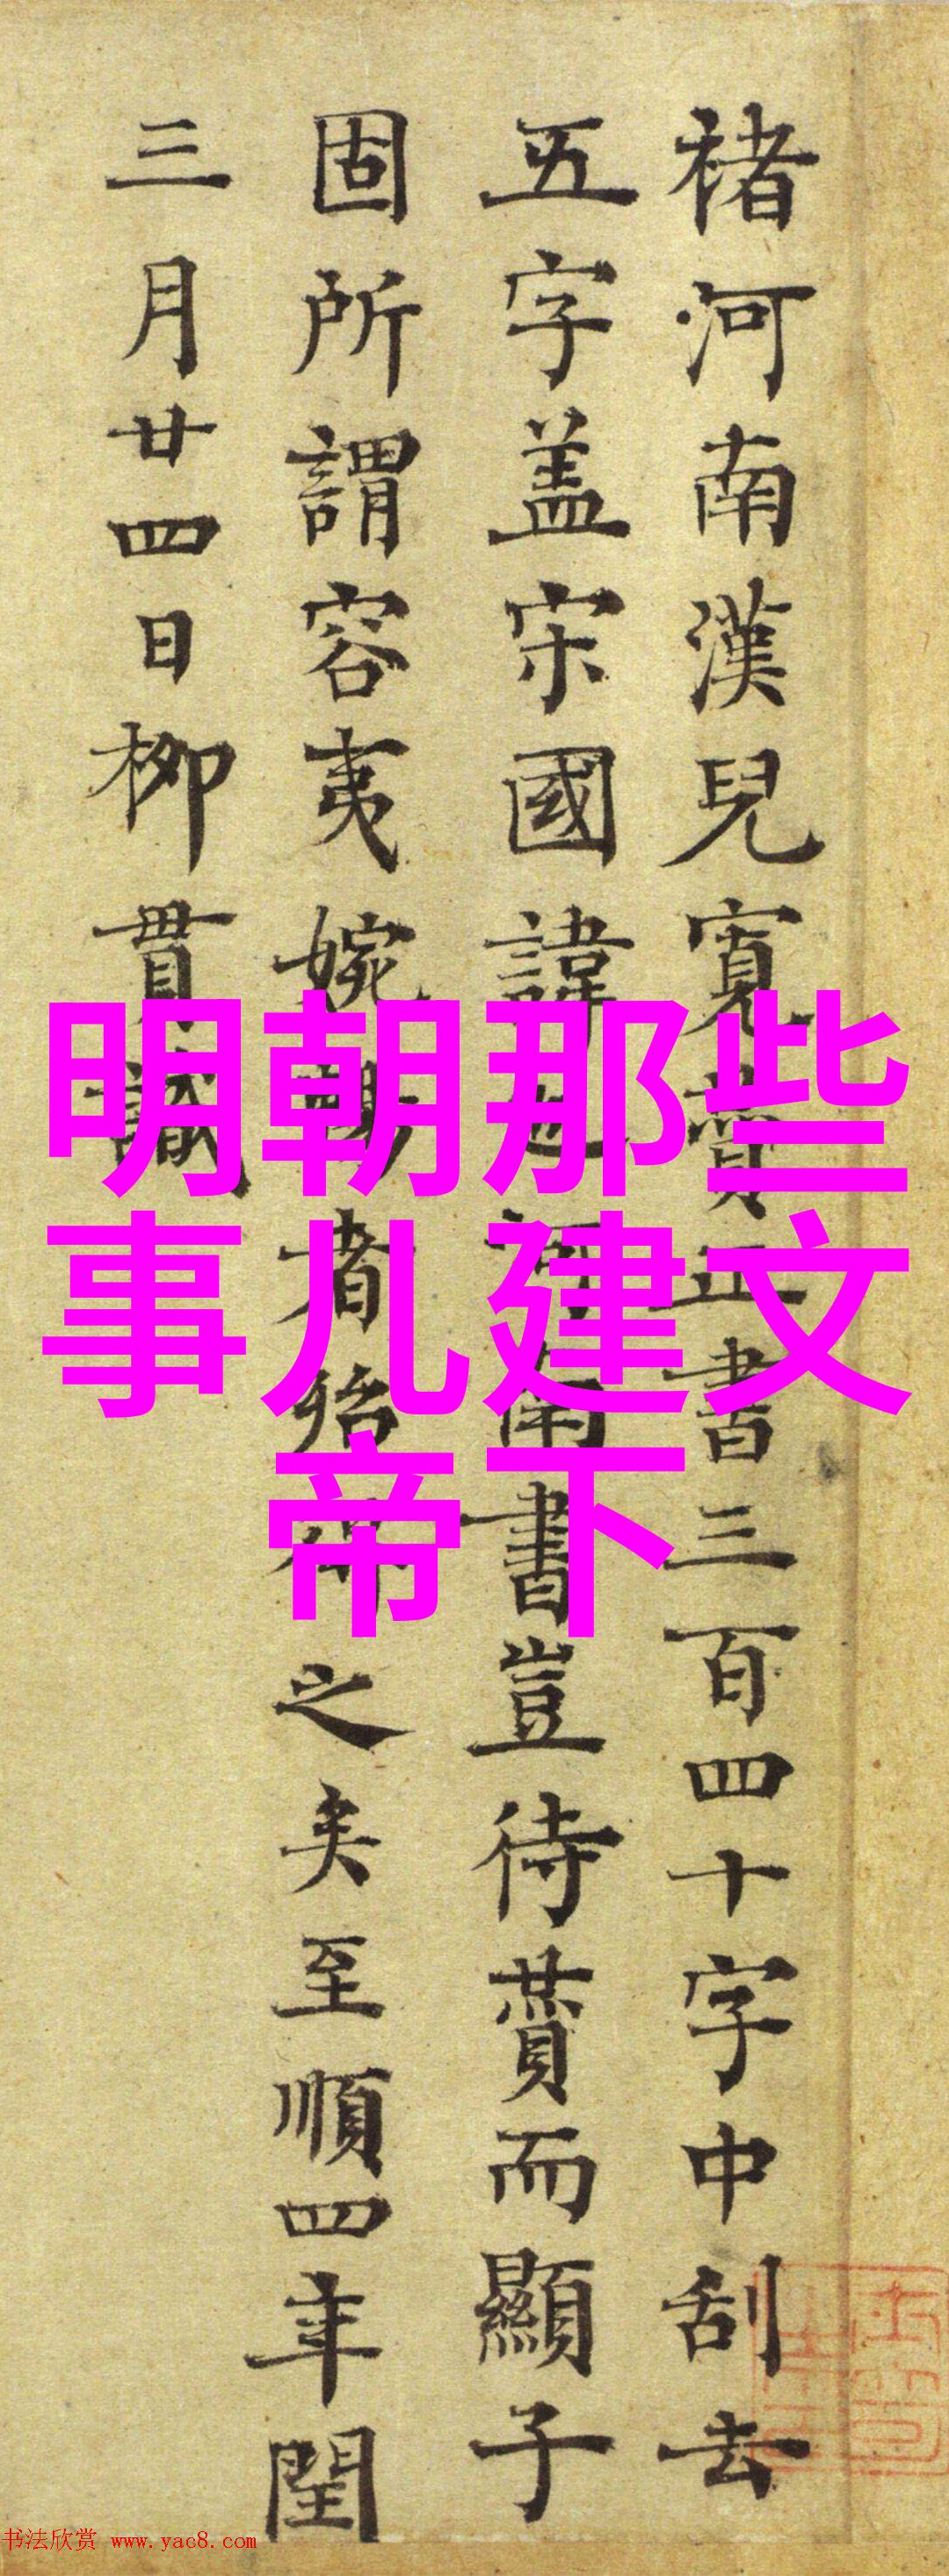 褚河南漢兒寬賛正書三百四十字中刮去
五字盖宋國諱也河南書豈待賛而顯子
固所謂容夷婉暢者殆之矣至順四年閏
三月廿四日柳貫識
明朝那些
事儿建文
帝下
书法欣赏 www.yac8.com